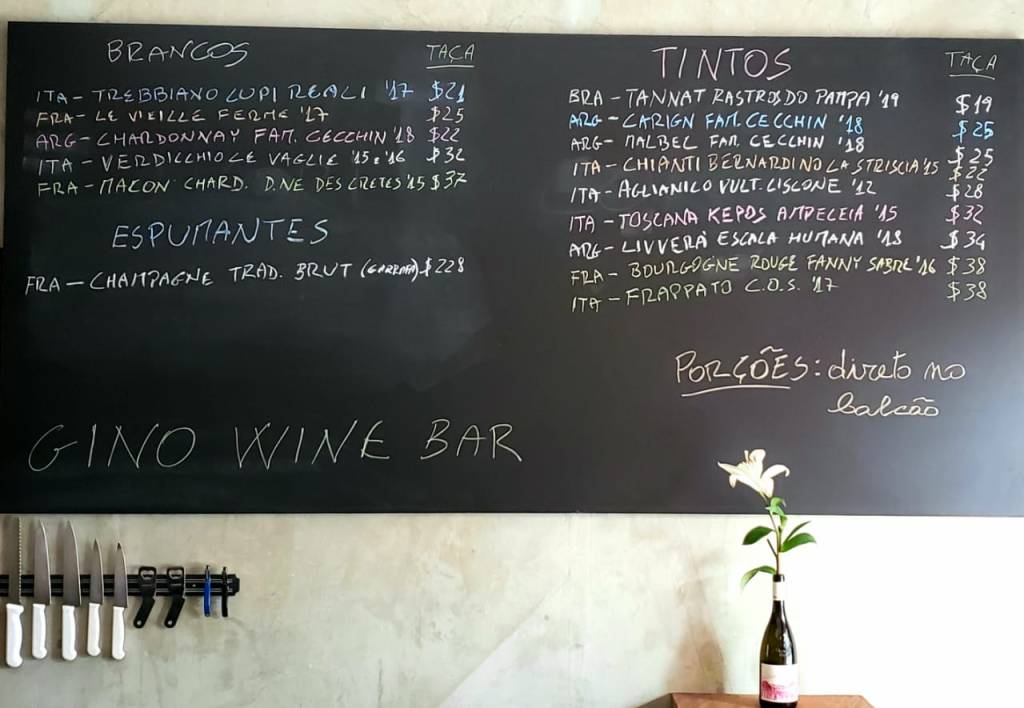 BRANCOS TAÇA
ITA - TREBBIANO LUPI REALI '17 $21
FRA - LE VIEILLE FERME '17 $25
ARG - CHARDONNAY FAM. CECCHIN '18 $22
ITA - VERDICCHIO LE VAGLIE '15 e '16 $32
FRA - MACON CHARD. D.NE DES CRETES '15 $37
ESPUMANTES
FRA - CHAMPAGNE TRAD. BRUT (GARRAFA) $228
GINO WINE BAR
TINTOS TAÇA
BRA - TANNAT RASTROS DO PAMPA '19 $19
ARG - CARIGN FAM. CECCHIN '18 $25
ARG - MALBEC FAM. CECCHIN '18 $25
ITA - CHIANTI BERNARDINO LA STRISCIA '15 $22
ITA - AGLIANICO VULT. LISCONE '12 $28
ITA - TOSCANA KEPOS AMPELEIA '15 $32
ARG - LIVVERÀ ESCALA HUMANA '18 $34
FRA - BOURGOGNE ROUGE FANNY SABRE '16 $38
ITA - FRAPPATO C.O.S. '17 $38
PORÇÕES: direto no
balcão